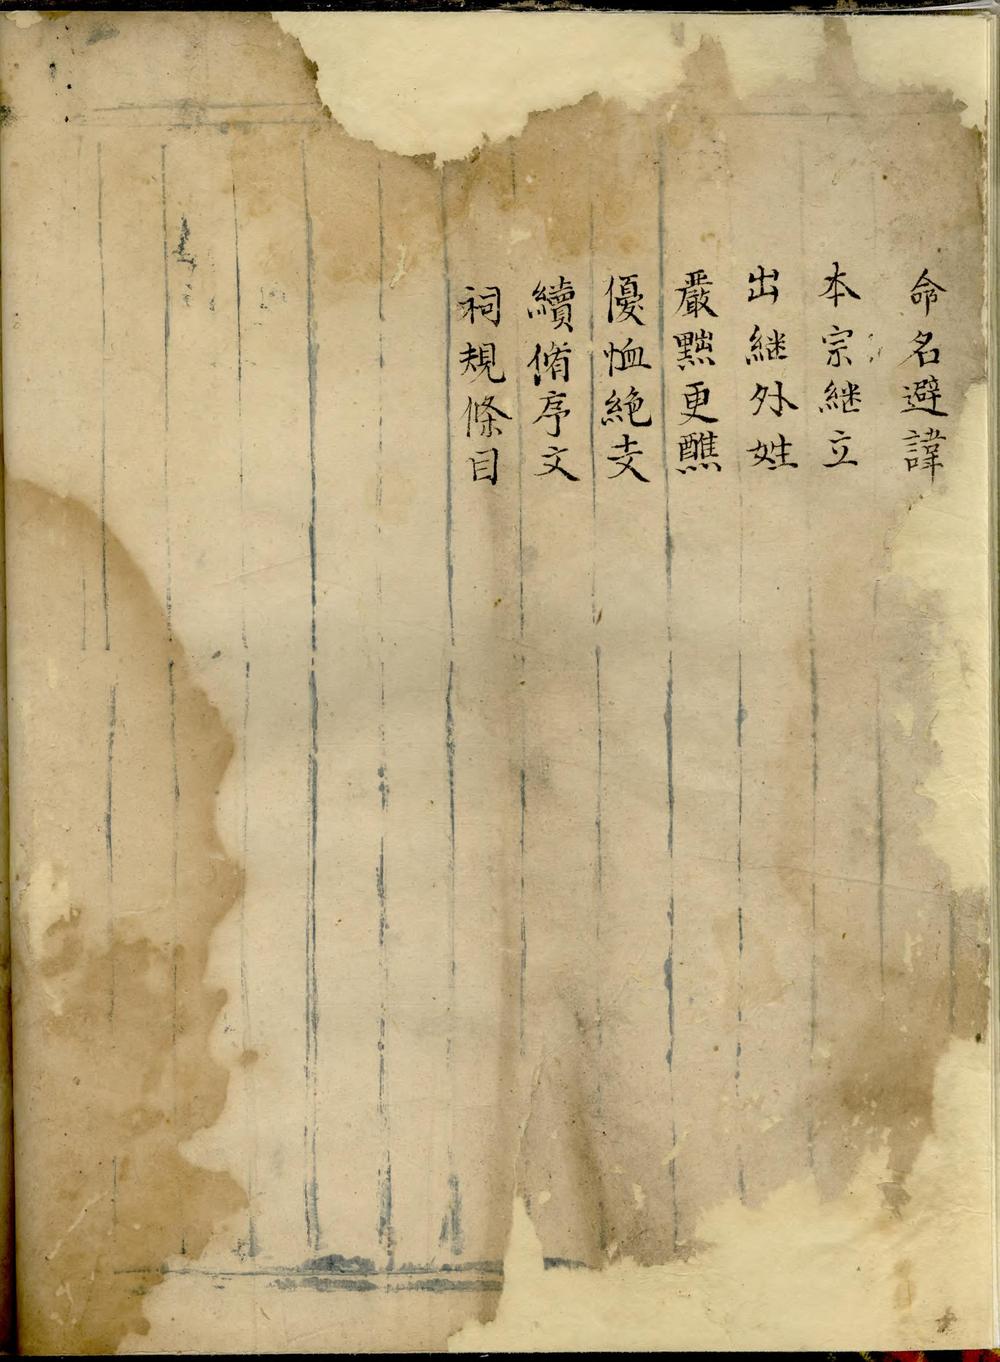 命名避諱
本宗継立
出継外姓
嚴黜更醮
優恤絶支
續脩序文
祠規條目